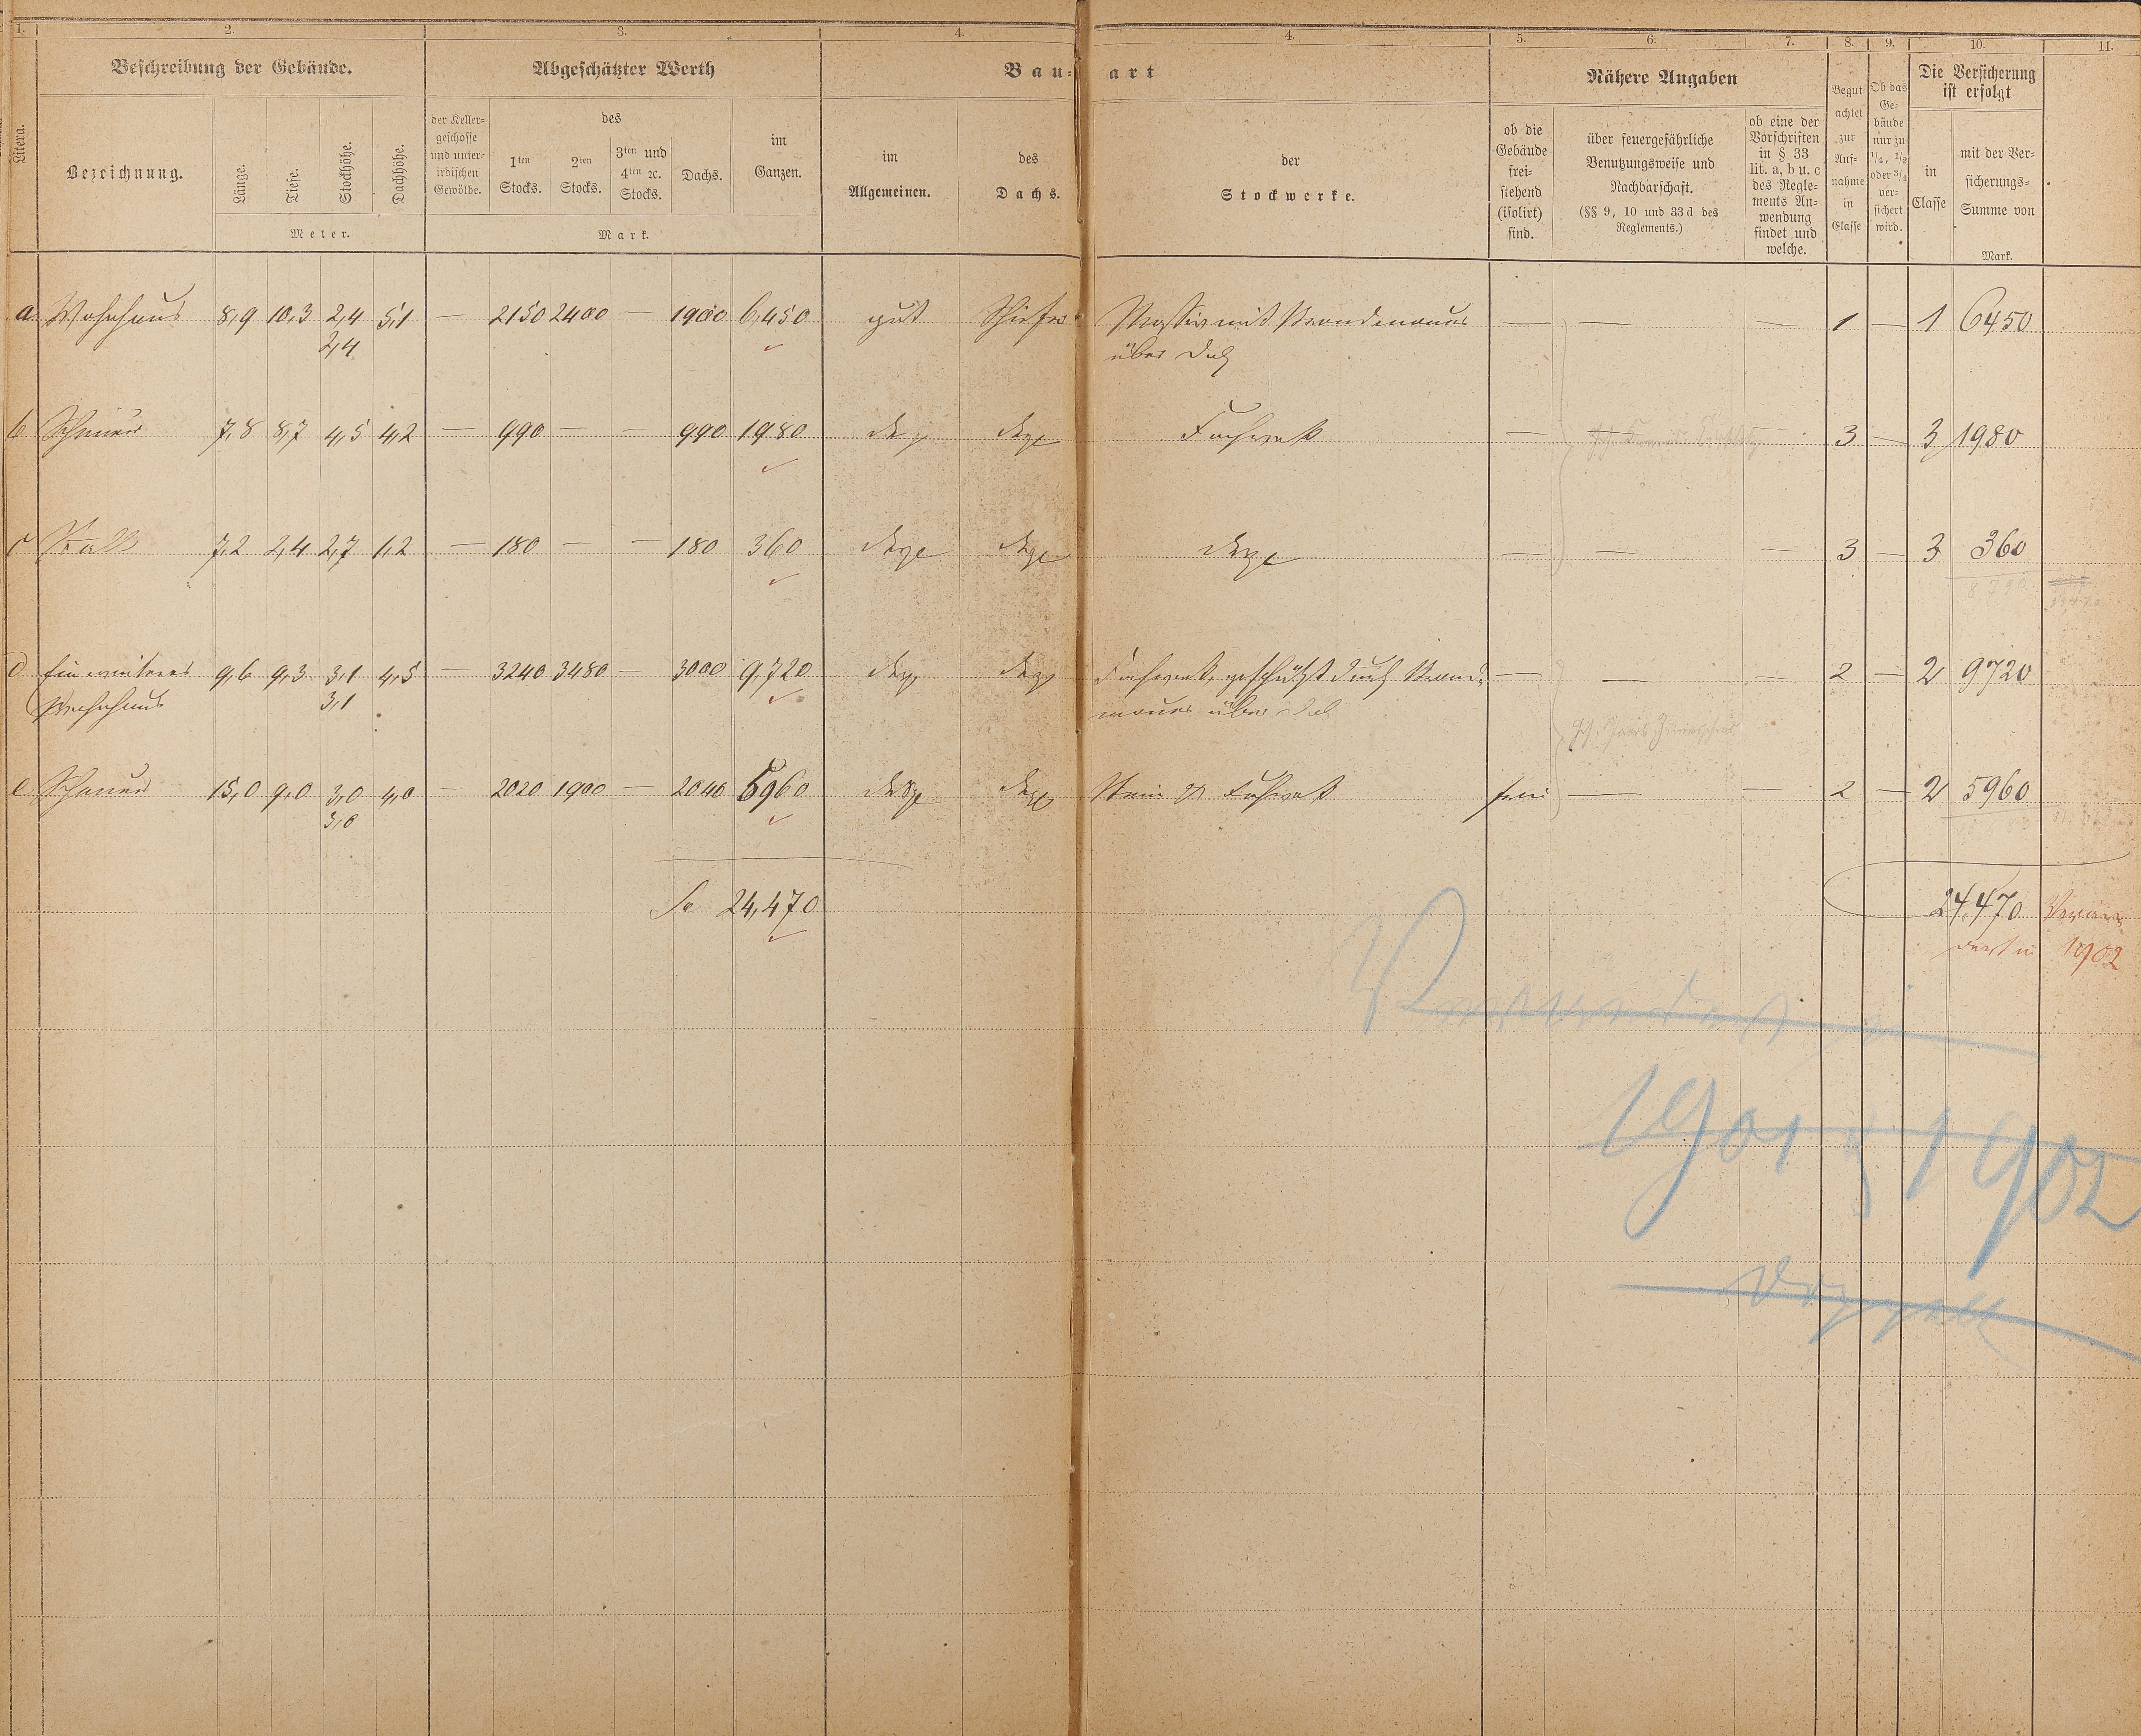 1. 2. 3. 4. 4. 5. 6. 7. 8. 9. 10. 11.
Beschreibung der Gebäude. Abgeschätzter Werth Bau- art Nähere Angaben Die Versicherung
ist erfolgt
Litera.
Bezeichnung.
Länge. Tiefe. Stockhöhe. Dachhöhe.
Meter.
der Keller-
geschosse
und unter-
irdischen
Gewölbe.
des
1ten
Stocks.
2ten
Stocks.
3ten und
4ten ꝛc.
Stocks.
Dachs.
im
Ganzen.
Mark.
im
Allgemeinen.
des
Dachs.
der
Stockwerke.
ob die
Gebäude
frei-
stehend
(isolirt)
sind.
über feuergefährliche
Benutzungsweise und
Nachbarschaft.
(§§ 9, 10 und 33 d des
Reglements.)
ob eine der
Vorschriften
in § 33
lit. a, b u. c
des Regle-
ments An-
wendung
findet und
welche.
Begut-
achtet
zur
Auf-
nahme
in
Classe
Ob das
Ge-
bäude
nur zu
1/4, 1/2
oder 3/4
ver-
sichert
wird.
in
Classe
mit der Ver-
sicherungs-
Summe von
Mark.
a. Wohnhaus 8,9 10,3 2,4 5,1 — 2150 2400 — 1900 6,450 gut Schiefer Massiv mit Brandmauer — — — 1 — 1 6450
2,4 über Dach
b Scheuer 7,8 8,7 4,5 4,2 — 990 — — 990 1980 desgl desgl Fachwerk — — 3 — 3 1980
c Stall 7,2 2,4 2,7 1,2 — 180 — — 180 360 desgl desgl desgl — — — 3 — 3 360
8,790
d Ein weiteres 9,6 9,3 3,1 4,5 — 3240 3480 — 3000 9,720 desgl desgl Fachwerk, geschützt durch Brand- — — — 2 — 2 9720
Wohnhaus 3,1 mauer über Dach
e Scheuer 15,0 9,0 3,0 4,0 — 2020 1900 — 2040 5960 desgl desgl Stein u Fachwerk frei — — 2 — 2 5960
3,0
Sa 24,470 24,470 Verän-
dert in 1902
Verändert in
1901 u 1902